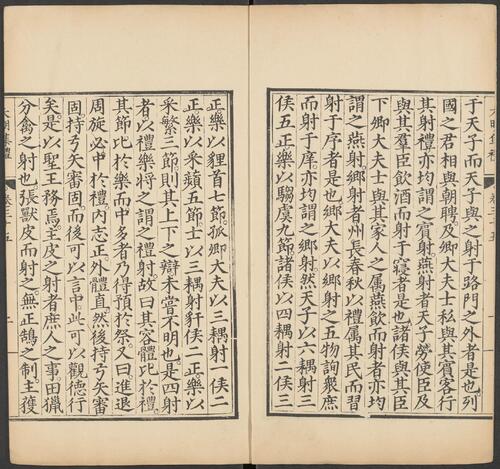 于天子而天子與之射于路門之外者是也列
國之君相與朝聘及卿大夫士私與其賓客行
其射禮亦均謂之賓射燕射者天子勞使臣及
與其羣臣飲酒而射于寢者是也諸侯與其臣
下卿大夫士與其家人之屬燕飲而射者亦均
謂之燕射鄉射者州長春秋以禮屬其民而習
射于序者是也鄉大夫以鄉射之五物詢衆庶
而射于庠亦均謂之鄉射然天子以六耦射三
侯五正樂以騶虞九節諸侯以四耦射二侯三
正樂以貍首七節孤卿大夫以三耦射一侯二
正樂以采蘋五節士以三耦射豻侯二正樂以
采繁三節則其上下之辯未嘗不明也是四射
者以禮樂將之謂之禮射故曰其容體比於禮
其節比於樂而中多者乃得預於祭又曰進退
周旋必中於禮內志正外體直然後持弓矢審
固持弓矢審固而後可以言中此可以觀德行
矣是以聖王務焉主皮之射者庶人之事田獵
分禽之射也張獸皮而射之無正鵠之制主獲
大明集禮
卷三十五
二